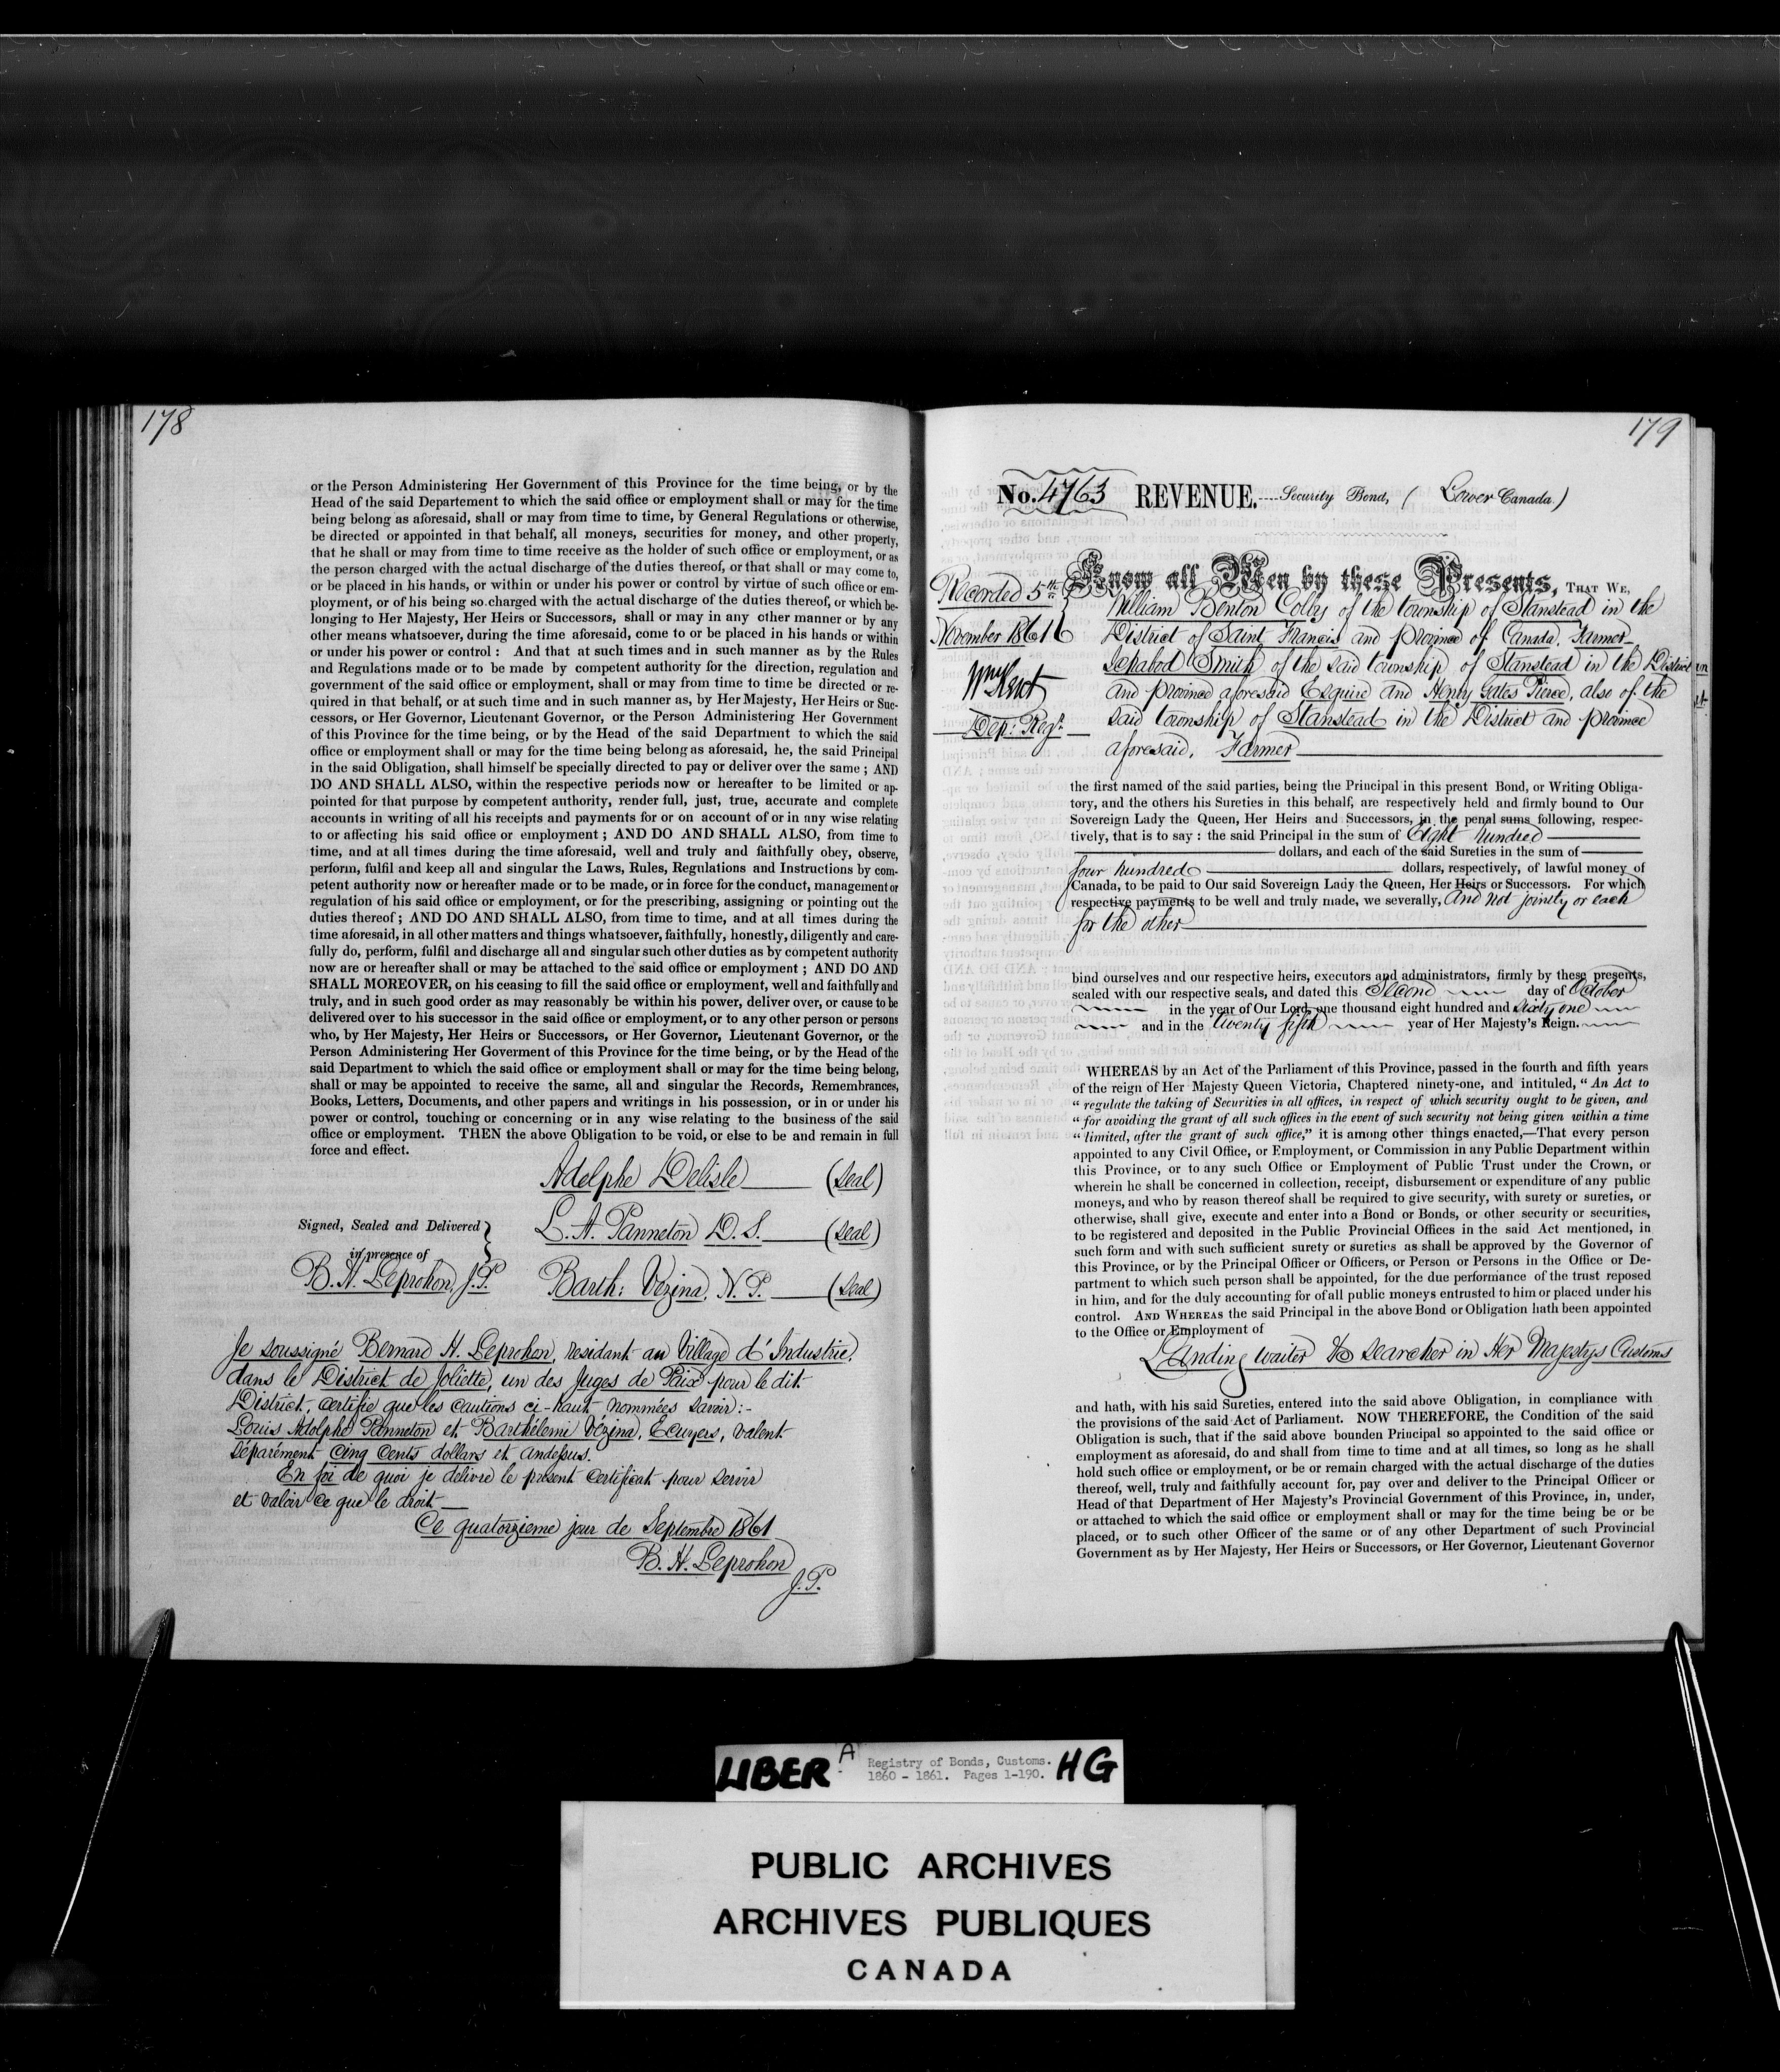 178
or the Person Administering Her Government of this Province for the time being, or by the
Head of the said Departement to which the said office or employment shall or may for the time
being belong as aforesaid, shall or may from time to time, by General Regulations or otherwise,
be directed or appointed in that behalf, all moneys, securities for money, and other property,
that he shall or may from time to time receive as the holder of such office or employment, or as
the person charged with the actual discharge of the duties thereof, or that shall or may come to,
or be placed in his hands, or within or under his power or control by virtue of such office or em-
ployment, or of his being so charged with the actual discharge of the duties thereof, or which be-
longing to Her Majesty, Her Heirs or Successors, shall or may in any other manner or by any
other means whatsoever, during the time aforesaid, come to or be placed in his hands or within
or under his power or control : And that at such times and in such manner as by the Rules
and Regulations made or to be made by competent authority for the direction, regulation and
government of the said office or employment, shall or may from time to time be directed or re-
quired in that behalf, or at such time and in such manner as, by Her Majesty, Her Heirs or Suc-
cessors, or Her Governor, Lieutenant Governor, or the Person Administering Her Government
of this Province for the time being, or by the Head of the said Department to which the said
office or employment shall or may for the time being belong as aforesaid, he, the said Principal
in the said Obligation, shall himself be specially directed to pay or deliver over the same ; AND
DO AND SHALL ALSO, within the respective periods now or hereafter to be limited or ap-
pointed for that purpose by competent authority, render full, just, true, accurate and complete
accounts in writing of all his receipts and payments for or on account of or in any wise relating
to or affecting his said office or employment ; AND DO AND SHALL ALSO, from time to
time, and at all times during the time aforesaid, well and truly and faithfully obey, observe,
perform, fulfil and keep all and singular the Laws, Rules, Regulations and Instructions by com-
petent authority now or hereafter made or to be made, or in force for the conduct, management or
regulation of his said office or employment, or for the prescribing, assigning or pointing out the
duties thereof ; AND DO AND SHALL ALSO, from time to time, and at all times during the
time aforesaid, in all other matters and things whatsoever, faithfully, honestly, diligently and care-
fully do, perform, fulfil and discharge all and singular such other duties as by competent authority
now are or hereafter shall or may be attached to the said office or employment ; AND DO AND
SHALL MOREOVER, on his ceasing to fill the said office or employment, well and faithfully and
truly, and in such good order as may reasonably be within his power, deliver over, or cause to be
delivered over to his successor in the said office or employment, or to any other person or persons
who, by Her Majesty, Her Heirs or Successors, or Her Governor, Lieutenant Governor, or the
Person Administering Her Goverment of this Province for the time being, or by the Head of the
said Department to which the said office or employment shall or may for the time being belong,
shall or may be appointed to receive the same, all and singular the Records, Remembrances,
Books, Letters, Documents, and other papers and writings in his possession, or in or under his
power or control, touching or concerning or in any wise relating to the business of the said
office or employment. THEN the above Obligation to be void, or else to be and remain in full
force and effect.
Adolphe Delisle (Seal)
Signed, Sealed and Delivered
L. A. Panneton D. S. (Seal)
in presence of
B. H. Leprohon, J.P.
Barth: Vézina, N. P. (Seal)
Je soussigné Bernard H. Leprohon, residant au Village d'Industrie,
dans le District de Joliette, un des Juges de Paix pour le dit
District, certifie que les cautions ci-haut nommées savoir:-
Louis Adolphe Panneton et Barthélemi Vézina, Ecuyers, valent
séparément Cinq Cents dollars et audessus.
En foi de quoi je delivre le present certificat pour servir
et valoir ce que le droit
Ce quatorzieme jour de Septembre 1861
B. H. Leprohon
J.P.
179
No. 4763 REVENUE. ----Security Bond, (Lower Canada)
Know all Men by these Presents, THAT WE,
Recorded 5th
November 1861
Wm Kent
Dep: Regr.
William Benton Colby of the township of Stanstead in the
District of Saint Francis and province of Canada, Farmer
Ichabod Smith of the said township of Stanstead in the District
and province aforesaid Esquire and Henry Gates Pierce, also of the
said township of Stanstead in the District and province
aforesaid, Farmer
the first named of the said parties, being the Principal in this present Bond, or Writing Obliga-
tory, and the others his Sureties in this behalf, are respectively held and firmly bound to Our
Sovereign Lady the Queen, Her Heirs and Successors, in the penal sums following, respec-
tively, that is to say : the said Principal in the sum of Eight hundred
dollars, and each of the said Sureties in the sum of
four hundred dollars, respectively, of lawful money of
Canada, to be paid to Our said Sovereign Lady the Queen, Her Heirs or Successors. For which
respective payments to be well and truly made, we severally, and not jointly or each
for the other
bind ourselves and our respective heirs, executors and administrators, firmly by these presents,
sealed with our respective seals, and dated this Second day of October
in the year of Our Lord, one thousand eight hundred and sixty one
and in the twenty fifth year of Her Majesty's Reign.
WHEREAS by an Act of the Parliament of this Province, passed in the fourth and fifth years
of the reign of Her Majesty Queen Victoria, Chaptered ninety-one, and intituled, " An Act to
" regulate the taking of Securities in all offices, in respect of which security ought to be given, and
" for avoiding the grant of all such offices in the event of such security not being given within a time
" limited, after the grant of such office," it is among other things enacted,—That every person
appointed to any Civil Office, or Employment, or Commission in any Public Department within
this Province, or to any such Office or Employment of Public Trust under the Crown, or
wherein he shall be concerned in collection, receipt, disbursement or expenditure of any public
moneys, and who by reason thereof shall be required to give security, with surety or sureties, or
otherwise, shall give, execute and enter into a Bond or Bonds, or other security or securities,
to be registered and deposited in the Public Provincial Offices in the said Act mentioned, in
such form and with such sufficient surety or sureties as shall be approved by the Governor of
this Province, or by the Principal Officer or Officers, or Person or Persons in the Office or De-
partment to which such person shall be appointed, for the due performance of the trust reposed
in him, and for the duly accounting for of all public moneys entrusted to him or placed under his
control. AND WHEREAS the said Principal in the above Bond or Obligation hath been appointed
to the Office or Employment of
Landing waiter & searcher in Her Majestys Customs
and hath, with his said Sureties, entered into the said above Obligation, in compliance with
the provisions of the said Act of Parliament. NOW THEREFORE, the Condition of the said
Obligation is such, that if the said above bounden Principal so appointed to the said office or
employment as aforesaid, do and shall from time to time and at all times, so long as he shall
hold such office or employment, or be or remain charged with the actual discharge of the duties
thereof, well, truly and faithfully account for, pay over and deliver to the Principal Officer or
Head of that Department of Her Majesty's Provincial Government of this Province, in, under,
or attached to which the said office or employment shall or may for the time being be or be
placed, or to such other Officer of the same or of any other Department of such Provincial
Government as by Her Majesty, Her Heirs or Successors, or Her Governor, Lieutenant Governor
LIBER A HG
Registry of Bonds, Customs.
1860 - 1861. Pages 1-190.
PUBLIC ARCHIVES
ARCHIVES PUBLIQUES
CANADA